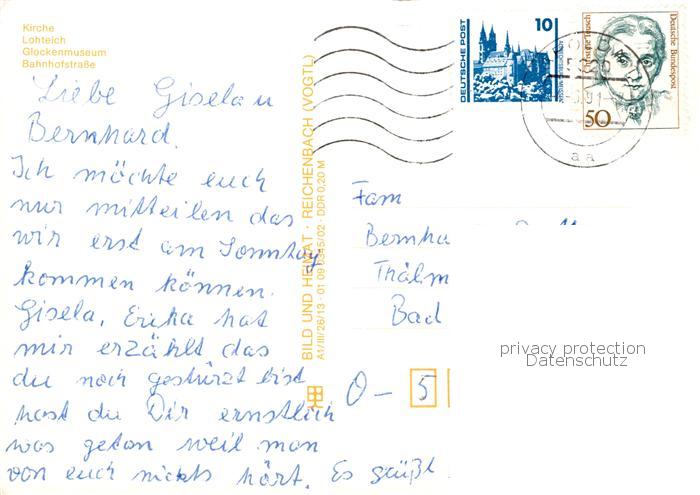 Kirche
Lohteich
Glockenmuseum
Bahnhofstraße
Liebe Gisela u
Bernhard.
Ich möchte euch
nur mitteilen das
wir erst am Sonntag
kommen können.
Gisela, Erika hat
mir erzählt das
du noch gestürzt bist
hast du Dir ernstlich
was getan weil man
von euch nichts hört. Es grüßt
BILD UND HEIMAT · REICHENBACH (VOGTL)
A1/III/26/13 · 01 09 0345/02 · DDR 0,20 M
DEUTSCHE POST
10
Deutsche Bundespost
50
aa
Fam
Bernha
Thälm
Bad
O - 5
privacy protection
Datenschutz